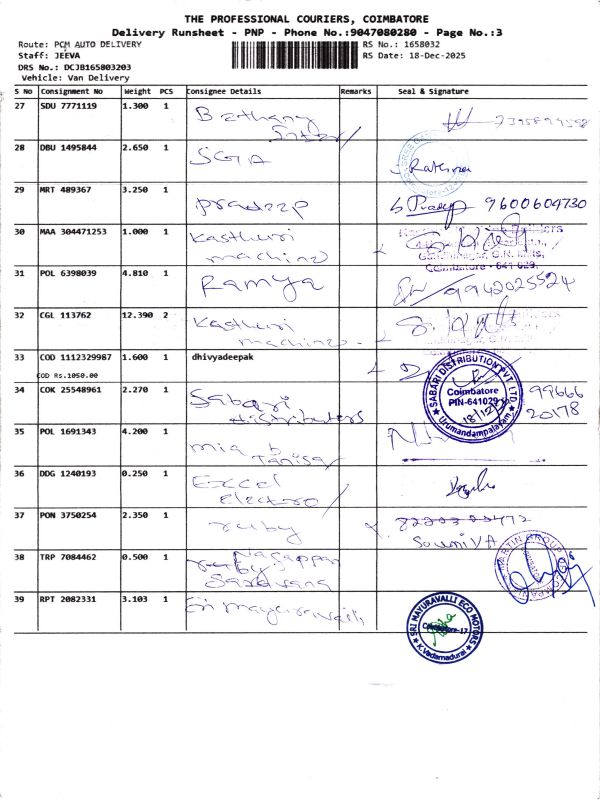 THE PROFESSIONAL COURIERS, COIMBATORE
Delivery Runsheet - PNP - Phone No.:9047080280 - Page No.:3
Route: PCM AUTO DELIVERY RS No.: 1658032
Staff: JEEVA RS Date: 18-Dec-2025
DRS No.: DCJB165803203
Vehicle: Van Delivery
S No Consignment No Weight PCS Consignee Details Remarks Seal & Signature
27 SDU 7771119 1.300 1 Bethany
28 DBU 1495844 2.650 1 SGA Rathna
29 MRT 489367 3.250 1 Pradeep 9600604730
30 MAA 304471253 1.000 1 Kasthuri
machine
G.N. Mills,
Coimbatore - 641 029.
31 POL 6398039 4.810 1 Ramya 9942025524
32 CGL 113762 12.390 2 Kasthuri
machine
33 COD 1112329987 1.600 1 dhivyadeepak
COD Rs.1050.00
34 COK 25548961 2.270 1 Sabari
distributers
SABARI DISTRIBUTION PVT. LTD.
Coimbatore
PIN-641029
18/12
Urumandampalayam
99666
20178
35 POL 1691343 4.200 1 mia by
Tanisa
36 DDG 1240193 0.250 1 Excel
electro
37 PON 3750254 2.350 1 ruby
SoumiyA
38 TRP 7084462 0.500 1 Nagappan
MARTIN GROUP
39 RPT 2082331 3.103 1 Sri mayuravalli
SRI MAYURAVALLI ECO MOTORS
Coimbatore-17
K.Vadamadurai